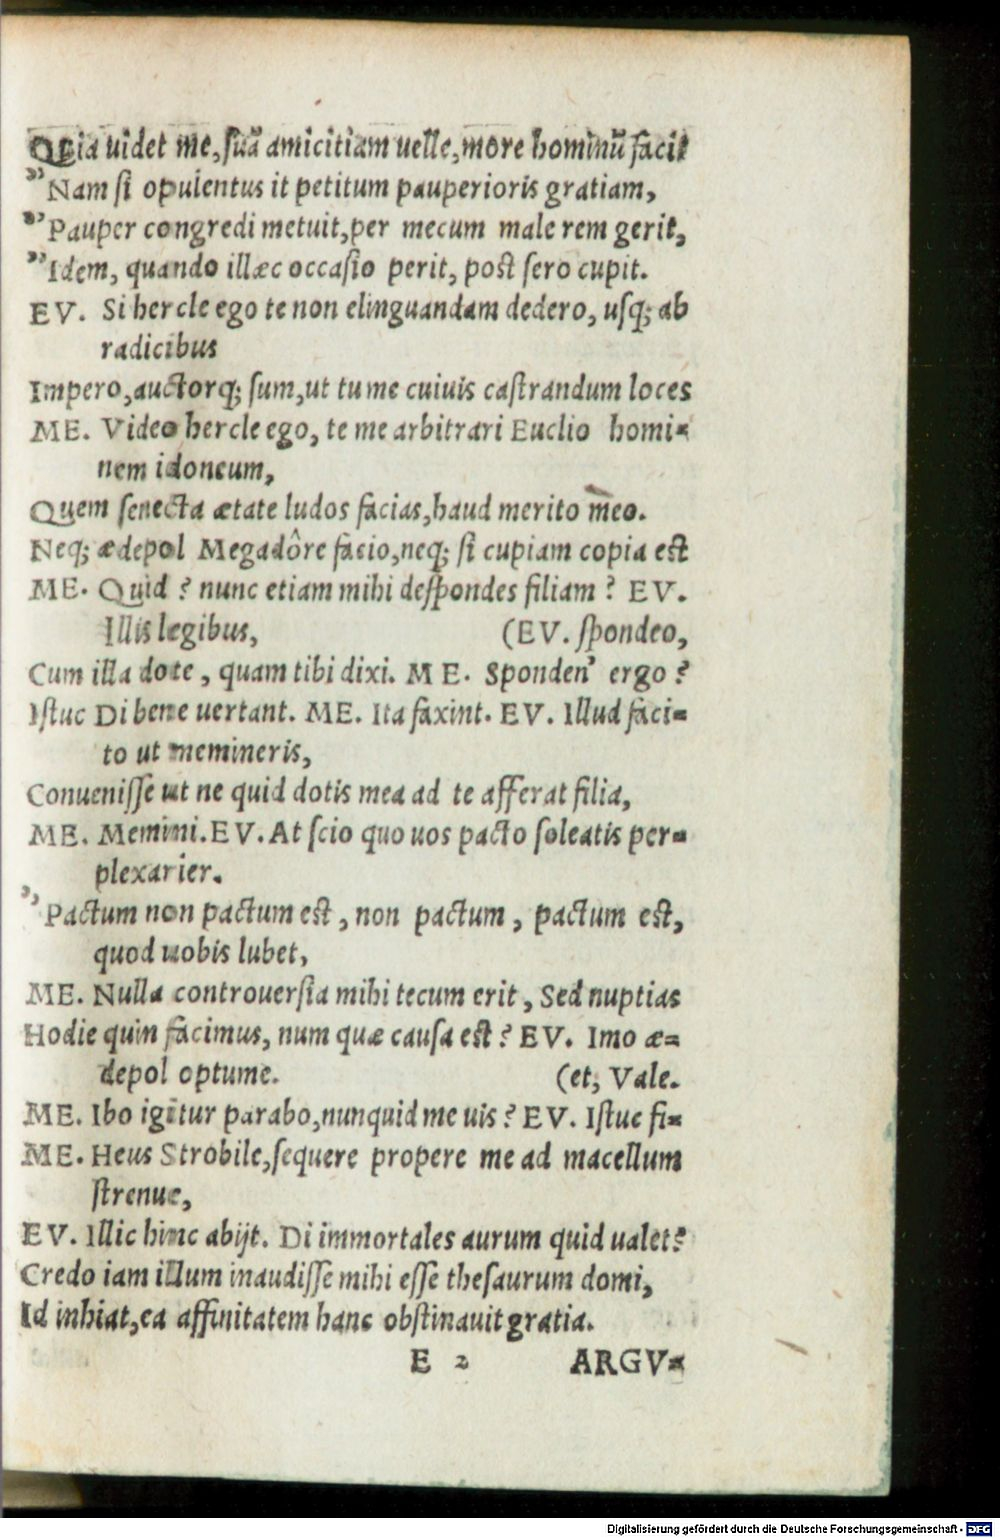 Quia uidet me, suã amicitiam uelle, more hominũ facit
„Nam si opulentus it petitum pauperioris gratiam,
„Pauper congredi metuit, per mecum male rem gerit,
„Idem, quando illæc occasio perit, post sero cupit.
EV. Si hercle ego te non elinguandam dedero, usq; ab
radicibus
Impero, auctorq; sum, ut tu me cuiuis castrandum loces
ME. Video hercle ego, te me arbitrari Euclio homi-
nem idoneum,
Quem senecta ætate ludos facias, haud merito meo.
Neq; ædepol Megadôre facio, neq; si cupiam copia est
ME. Quid? nunc etiam mihi despondes filiam? EV.
Illis legibus, (EV. spondeo,
Cum illa dote, quam tibi dixi. ME. Sponden' ergo?
Istuc Di bene uertant. ME. Ita faxint. EV. Illud faci-
to ut memineris,
Conuenisse ut ne quid dotis mea ad te afferat filia,
ME. Memini. EV. At scio quo uos pacto soleatis per-
plexarier.
„Pactum non pactum est, non pactum, pactum est,
quod uobis lubet,
ME. Nulla controuersia mihi tecum erit, Sed nuptias
Hodie quin facimus, num quæ causa est? EV. Imo æ-
depol optume. (et, Vale.
ME. Ibo igitur parabo, nunquid me uis? EV. Istuc fi-
ME. Heus Strobile, sequere propere me ad macellum
strenue,
EV. Illic hinc abijt. Di immortales aurum quid ualet?
Credo iam illum inaudisse mihi esse thesaurum domi,
Id inhiat, ea affinitatem hanc obstinauit gratia.
E 2 ARGV-
Digitalisierung gefördert durch die Deutsche Forschungsgemeinschaft - DFG